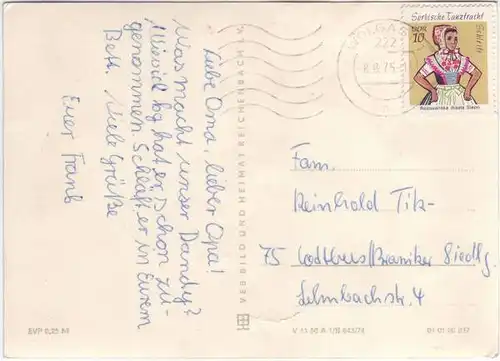 Liebe Oma, lieber Opa!
Was macht unser Dandy?
Wieviel kg hat er schon zu-
genommen. Schläft er in Eurem
Bett. Viele Grüße
Euer Frank
VEB BILD UND HEIMAT REICHENBACH (V)
EVP 0,25 M
V 11 50 A 1/B 643/74
01 01 06 037
WOLGAST
222
-8.8.75-
Sorbische Tanztracht
Schleife
DDR
10
Fam.
Reinhold Tik-
75 Cottbus/Branitzer Siedlg.
Lehmbachstr. 4